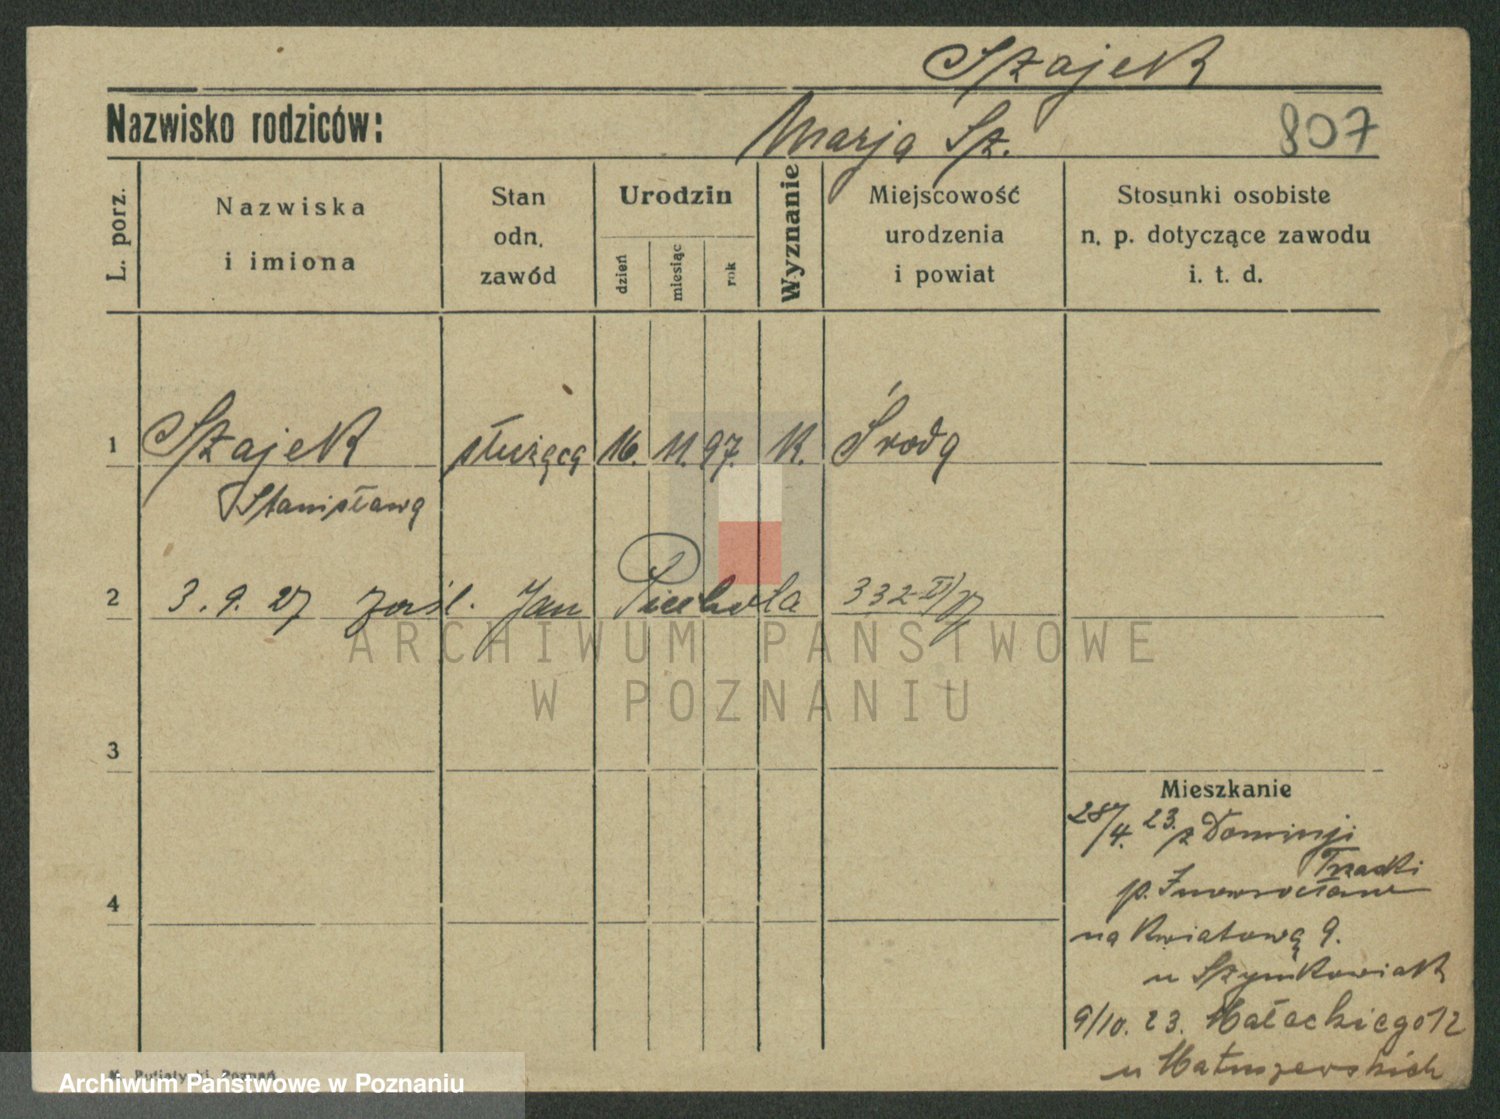 Szajek
Nazwisko rodziców:
Marja Sz.
807
L. porz.
Nazwiska
i imiona
Stan
odn.
zawód
Urodzin
dzień
miesiąc
rok
Wyznanie
Miejscowość
urodzenia
i powiat
Stosunki osobiste
n. p. dotyczące zawodu
i. t. d.
1 Szajek służąca 16. 11. 97. K. Środa
Stanisława
2 3. 9. 27 zaśl. Jan Piechota 332 II/27
ARCHIWUM PAŃSTWOWE
W POZNANIU
3
Mieszkanie
28/4. 23. z Dominji
p. Inowrocław
4
na Kwiatową 9.
u Szymkowiak
9/10. 23. Małeckiego 12
u Matuszewskich
Poznań
Archiwum Państwowe w Poznaniu